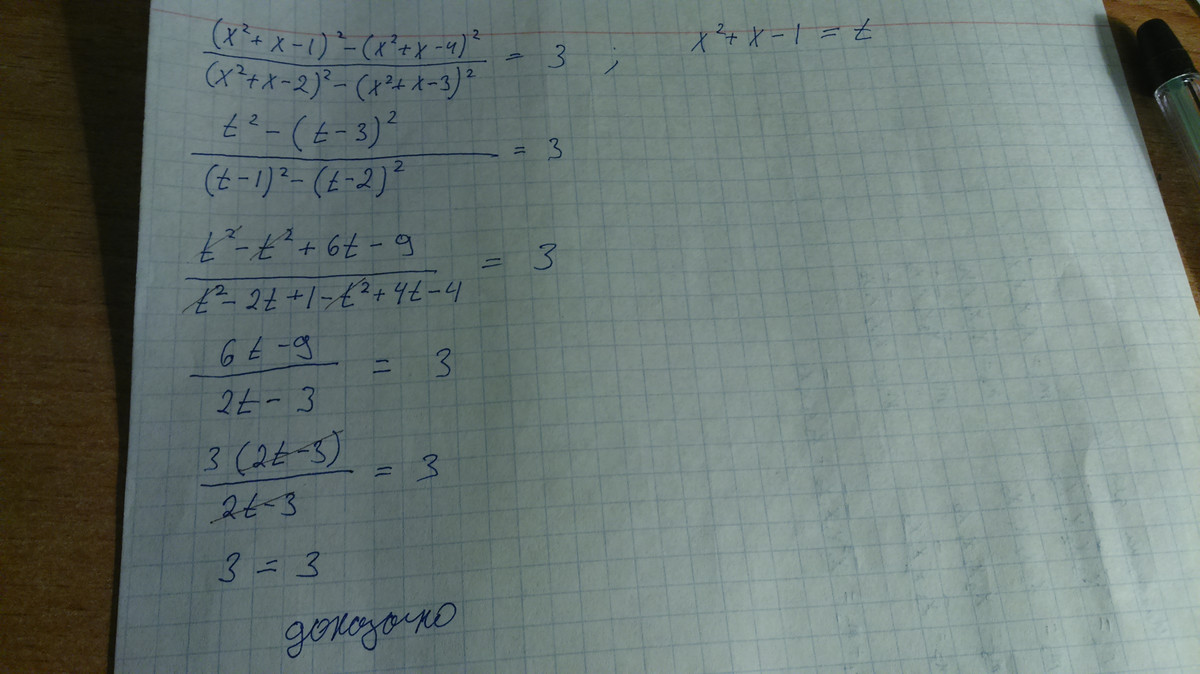 (x²+x-1)²-(x²+x-4)² / (x²+x-2)²-(x²+x-3)² = 3 ; x²+x-1 = t
t²-(t-3)² / (t-1)²-(t-2)² = 3
t²-t²+6t-9 / t²-2t+1-t²+4t-4 = 3
6t-9 / 2t-3 = 3
3(2t-3) / 2t-3 = 3
3 = 3
доказано